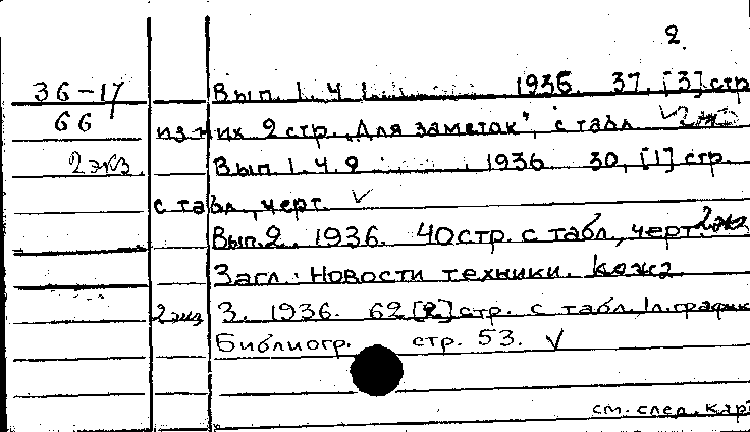 2.
36-17 Вып. 1. Ч 1. 1936. 37, [3] стр
66 из них 2 стр. „Для заметок", с табл 2экз
2экз. Вып. 1. ч. 2 1936 30, [1] стр.
с табл, черт.
Вып. 2. 1936. 40 стр. с табл, черт. 2экз
Загл.: Новости техники. Кожа
2экз 3. 1936. 62 [2] стр. с табл., 1л. график
Библиогр. стр. 53.
см. след. карт